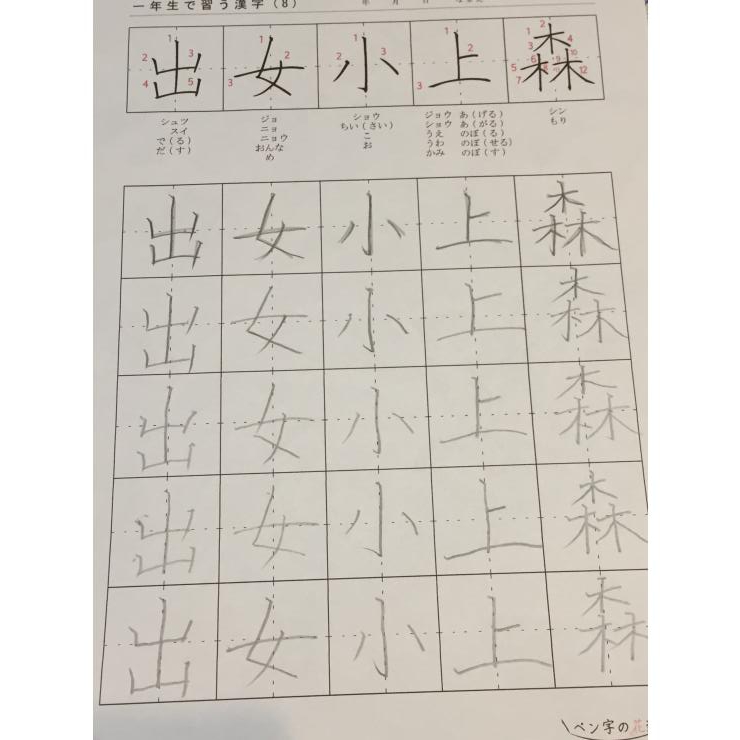 一年生で習う漢字(8)
年 月 日
出 女 小 上 森
シュツ
スイ
で(る)
だ(す)
ジョ
ニョ
ニョウ
おんな
め
ショウ
ちい(さい)
こ
お
ジョウ あ(げる)
ショウ あ(がる)
うえ のぼ(る)
うわ のぼ(せる)
かみ のぼ(す)
シン
もり
出 女 小 上 森
出 女 小 上 森
出 女 小 上 森
出 女 小 上 森
出 女 小 上 森
\ペン字の花